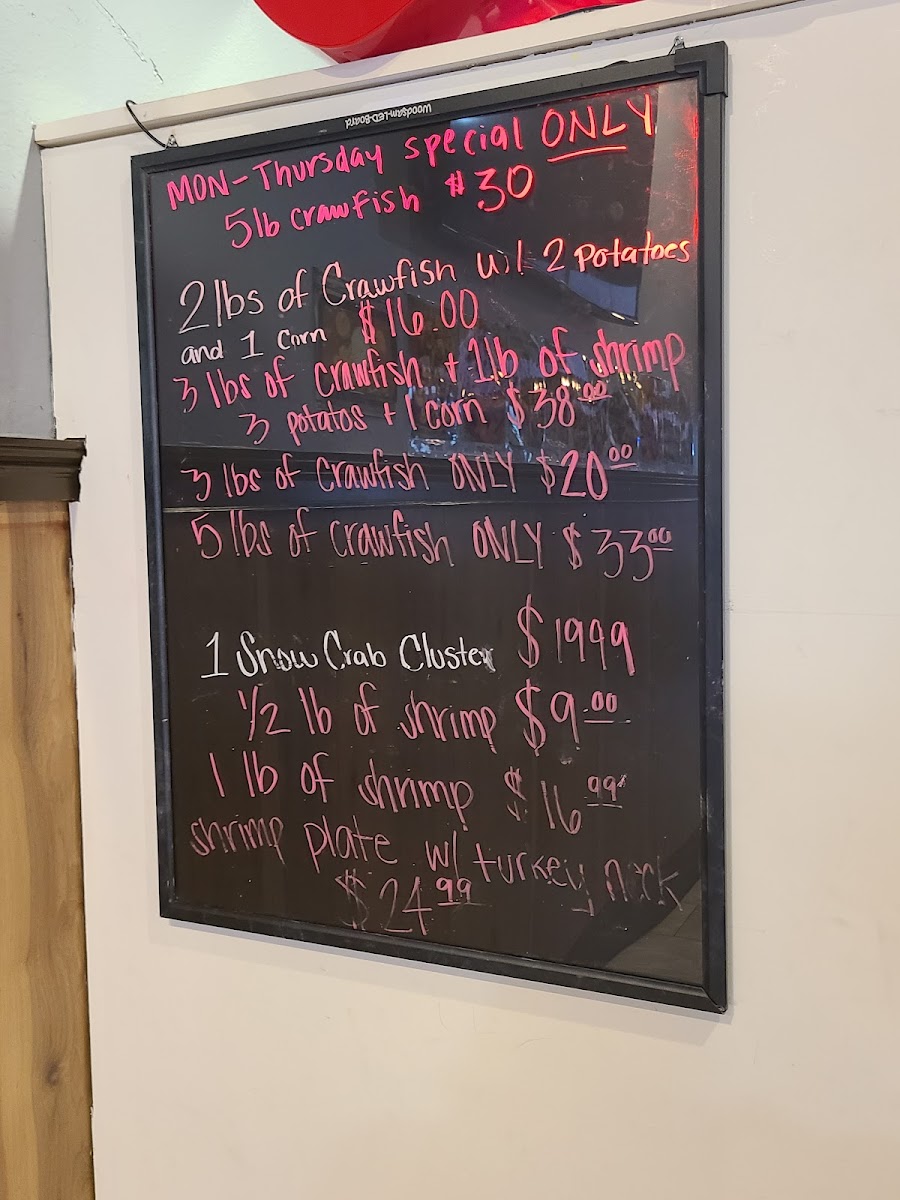 Woodsam-LED-Board
MON-Thursday special ONLY
5lb crawfish $30
2 lbs of Crawfish w/ 2 Potatoes
and 1 Corn $16.00
3 lbs of crawfish + 1lb of shrimp
3 potatos + 1 corn $38.00
3 lbs of Crawfish ONLY $20.00
5 lbs of crawfish ONLY $33.00
1 Snow Crab Cluster $1999
1/2 lb of shrimp $9.00
1 lb of shrimp $16.99
shrimp plate w/ turkey neck
$24.99